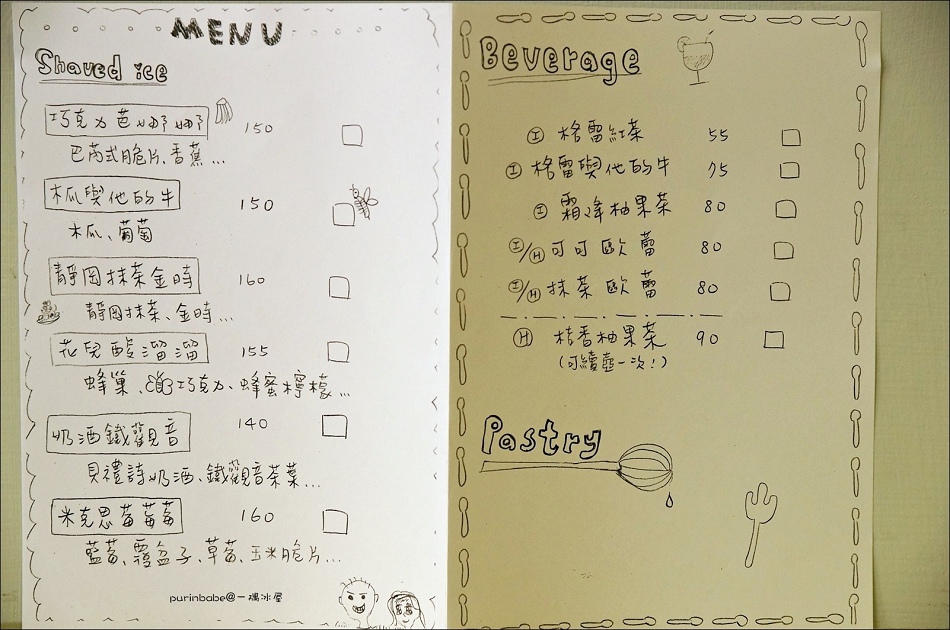 MENU
Shaved ice
巧克力芭娜娜 150
巴芮式脆片、香蕉...
木瓜與他的牛 150
木瓜、葡萄
靜岡抹茶金時 160
靜岡抹茶、金時...
花兒酸溜溜 155
蜂巢、巧克力、蜂蜜檸檬...
奶酒鐵觀音 140
貝禮詩奶酒、鐵觀音茶葉...
米克思莓莓莓 160
藍莓、覆盆子、草莓、玉米脆片...
purinbabe@一禑冰屋
Beverage
I 格雷紅茶 55
I 格雷與他的牛 75
I 霜降柚果茶 80
I/H 可可歐蕾 80
I/H 抹茶歐蕾 80
H 桔香柚果茶 90
(可續壺一次!)
Pastry